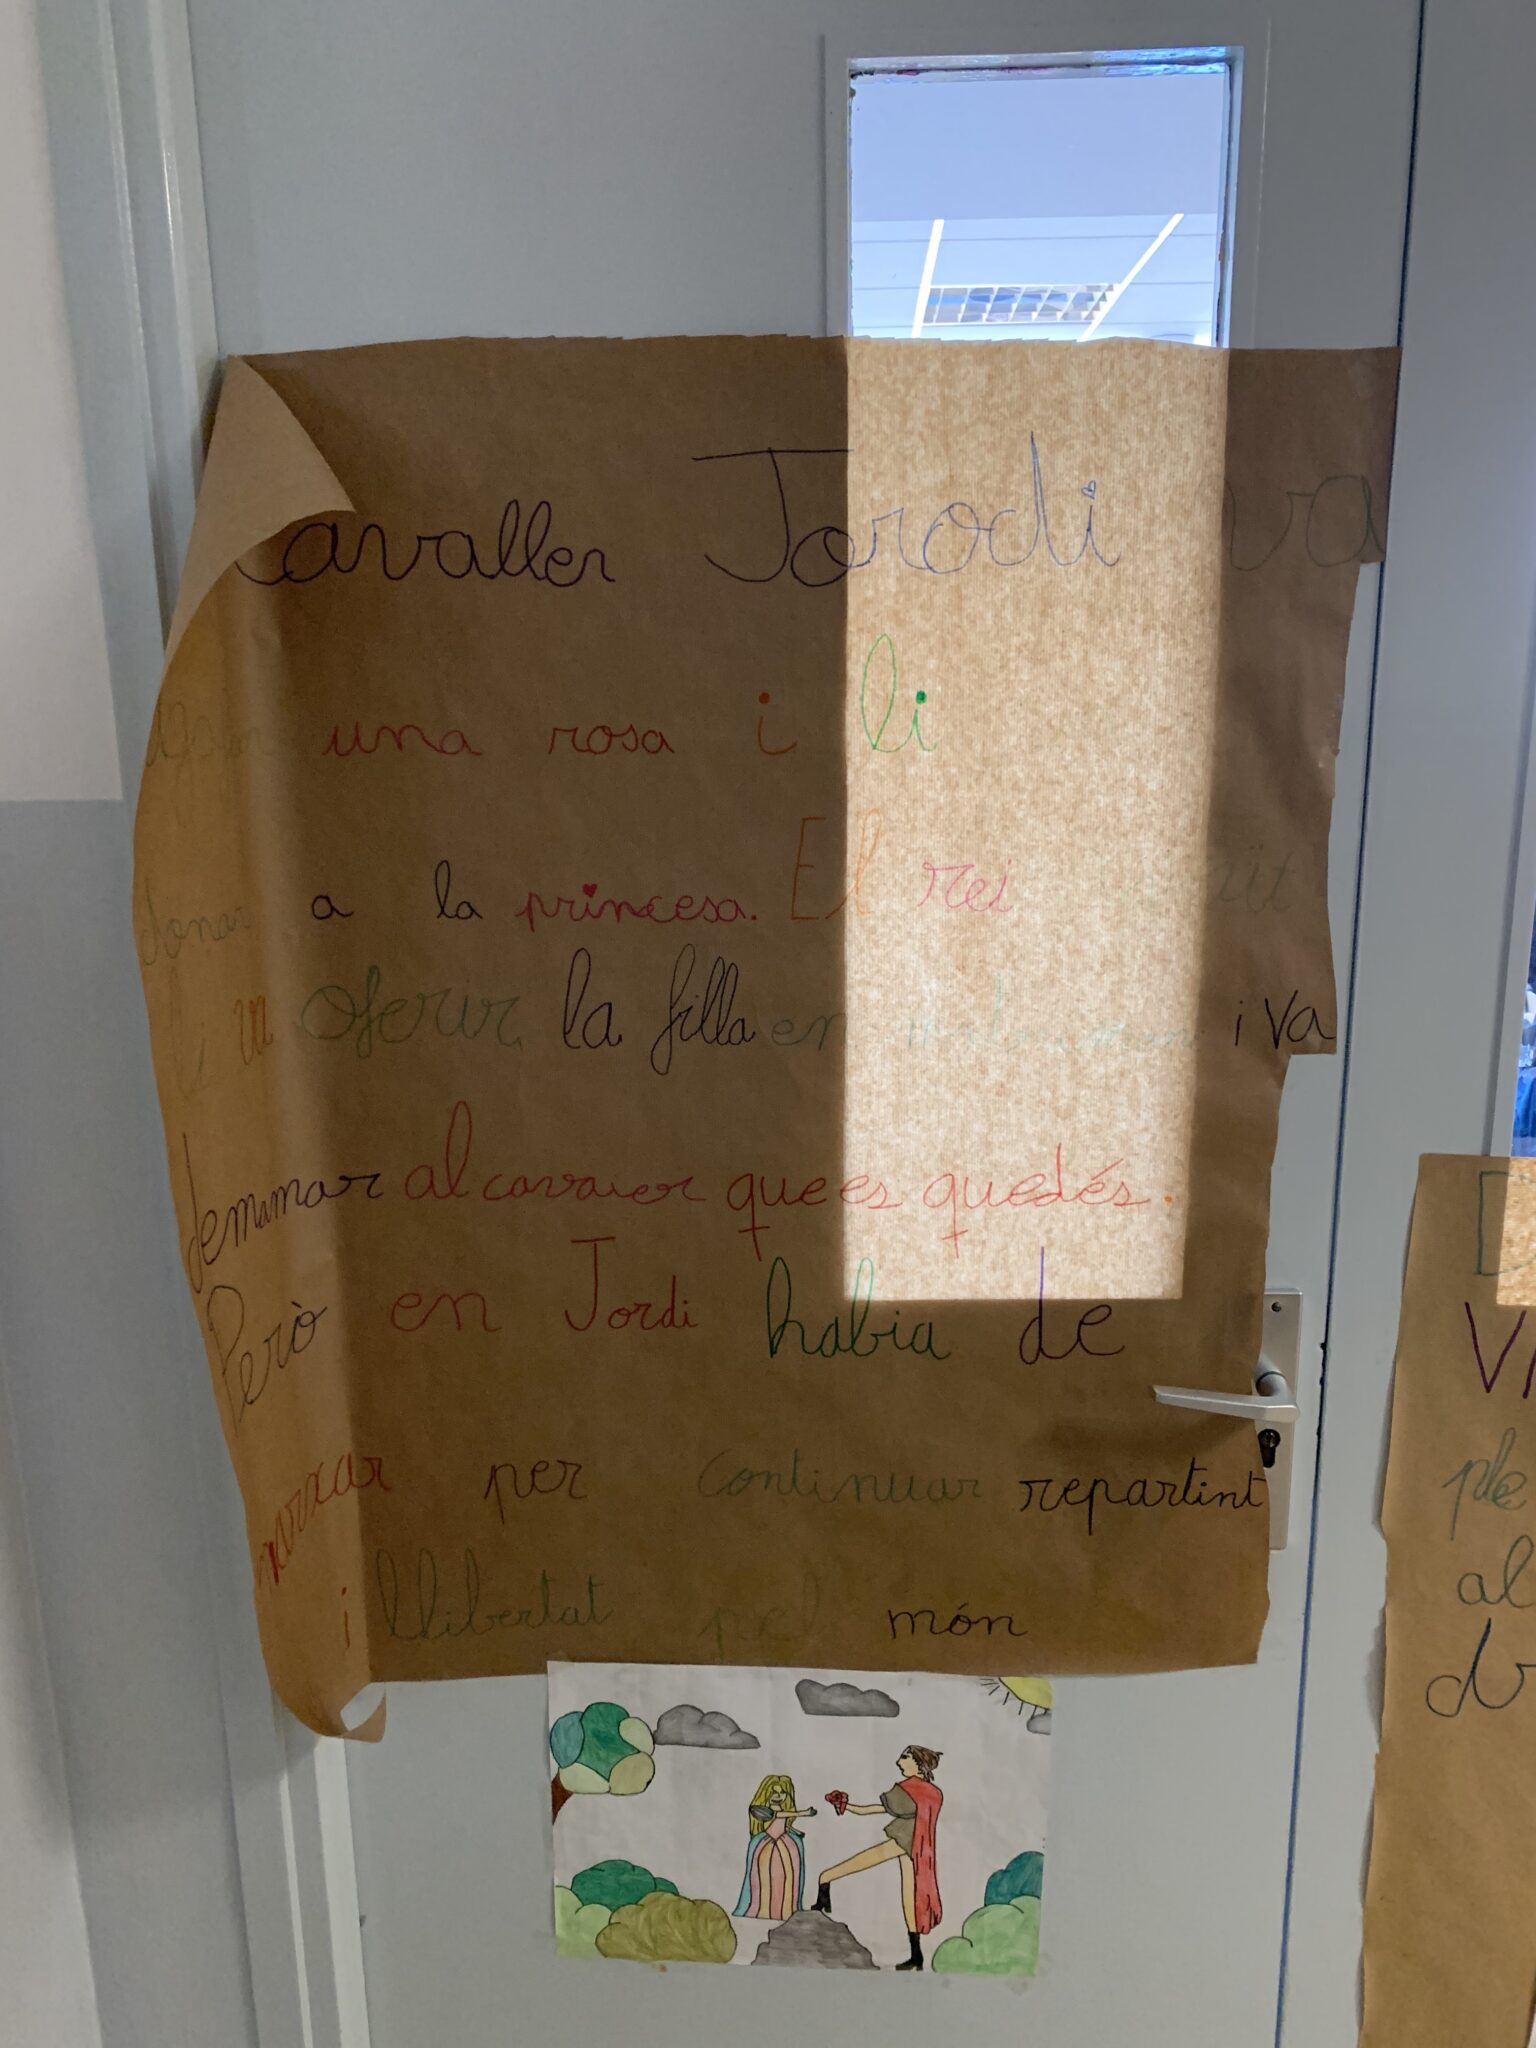 cavaller Jorodi va
agafar una rosa i li
donar a la princesa. El rei
li va oferir la filla en i va
demamar al cavaier que es quedés.
Però en Jordi habia de
marxar per continuar repartint
i llibertat pel món
VI
ple
al